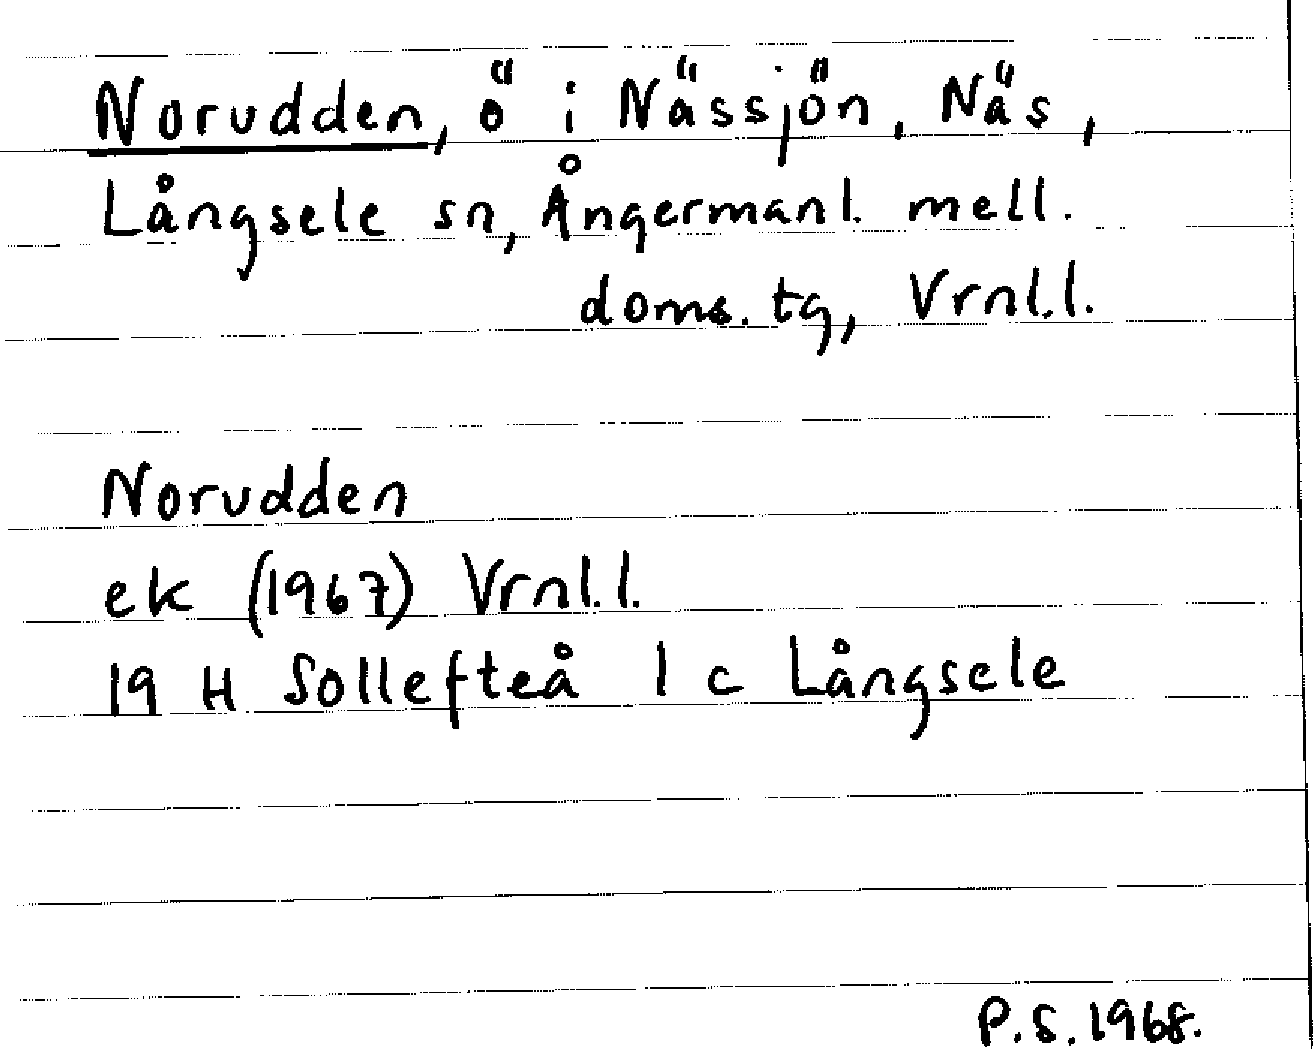 Norudden, ö i Nässjön, Näs,
Långsele sn, Ångermanl. mell.
doms. tg, Vrnl.l.
Norudden
ek (1967) Vrnl.l.
19 H Sollefteå 1 c Långsele
P.S. 1968.